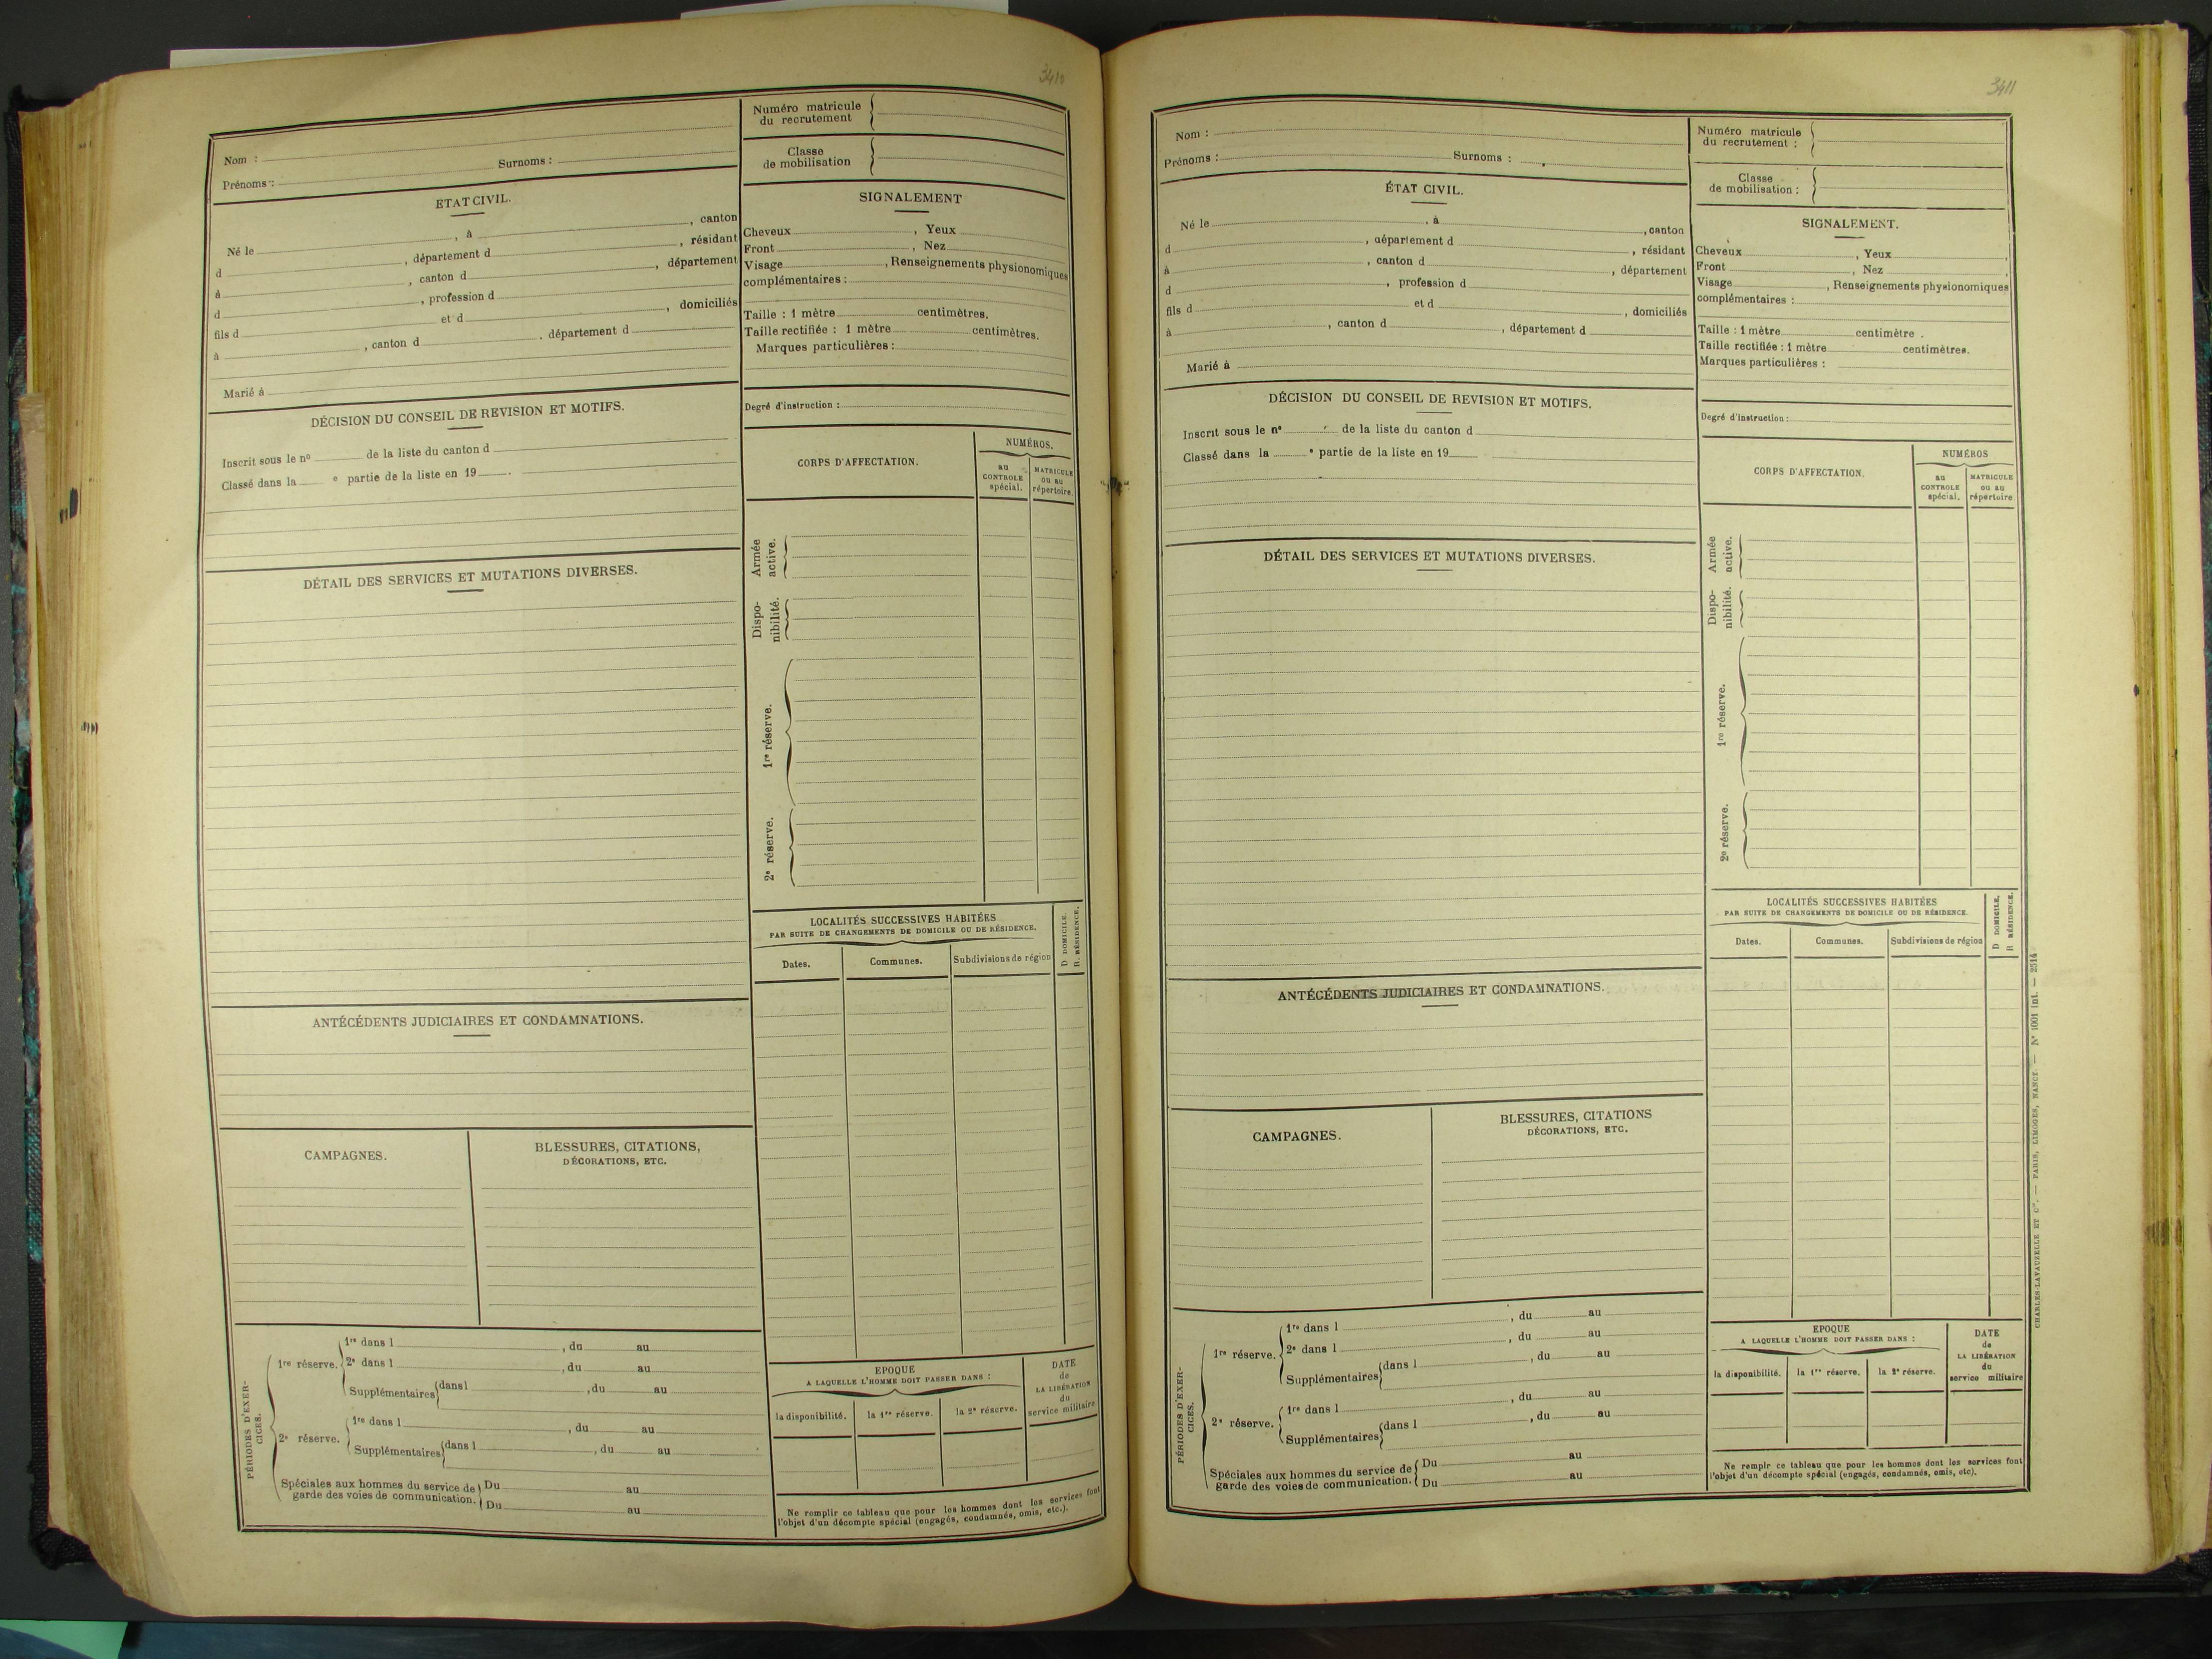 3410
Nom :
Prénoms : Surnoms :
Numéro matricule
du recrutement
Classe
de mobilisation
ETAT CIVIL.
Né le , à , canton
d , département d , résidant
à , canton d , département
d , profession d
fils d et d , domiciliés
à , canton d , département d
Marié à
SIGNALEMENT
Cheveux , Yeux
Front , Nez
Visage , Renseignements physionomiques
complémentaires :
Taille : 1 mètre centimètres.
Taille rectifiée : 1 mètre centimètres.
Marques particulières :
Degré d'instruction :
DÉCISION DU CONSEIL DE REVISION ET MOTIFS.
Inscrit sous le nº de la liste du canton d
Classé dans la e partie de la liste en 19 .
CORPS D'AFFECTATION.
NUMÉROS.
au
CONTROLE
spécial.
MATRICULE
ou au
répertoire.
Armée
active.
Dispo-
nibilité.
1re réserve.
2e réserve.
DÉTAIL DES SERVICES ET MUTATIONS DIVERSES.
LOCALITÉS SUCCESSIVES HABITÉES
PAR SUITE DE CHANGEMENTS DE DOMICILE OU DE RÉSIDENCE.
Dates.
Communes.
Subdivisions de région
D DOMICILE.
R. RÉSIDENCE.
ANTÉCÉDENTS JUDICIAIRES ET CONDAMNATIONS.
CAMPAGNES.
BLESSURES, CITATIONS,
DÉCORATIONS, ETC.
PÉRIODES D'EXER-
CICES.
1re réserve.
1re dans l , du au
2e dans l , du au
Supplémentaires dans l , du au
2e réserve.
1re dans l , du au
Supplémentaires dans l , du au
Spéciales aux hommes du service de
garde des voies de communication.
Du au
Du au
EPOQUE
A LAQUELLE L'HOMME DOIT PASSER DANS :
la disponibilité.
la 1re réserve.
la 2e réserve.
DATE
de
LA LIBÉRATION
du
service militaire
Ne remplir ce tableau que pour les hommes dont les services font
l'objet d'un décompte spécial (engagés, condamnés, omis, etc.).
3411
Nom :
Prénoms : Surnoms :
Numéro matricule
du recrutement :
Classe
de mobilisation :
ÉTAT CIVIL.
Né le , à , canton
d , département d , résidant
à , canton d , département
d , profession d
fils d et d , domiciliés
à , canton d , département d
Marié à
SIGNALEMENT.
Cheveux , Yeux ,
Front , Nez ,
Visage , Renseignements physionomiques
complémentaires :
Taille : 1 mètre centimètre .
Taille rectifiée : 1 mètre centimètres.
Marques particulières :
Degré d'instruction :
DÉCISION DU CONSEIL DE REVISION ET MOTIFS.
Inscrit sous le nº de la liste du canton d
Classé dans la e partie de la liste en 19
CORPS D'AFFECTATION.
NUMÉROS
au
CONTROLE
spécial.
MATRICULE
ou au
répertoire
Armée
active.
Dispo-
nibilité.
1re réserve.
2e réserve.
DÉTAIL DES SERVICES ET MUTATIONS DIVERSES.
LOCALITÉS SUCCESSIVES HABITÉES
PAR SUITE DE CHANGEMENTS DE DOMICILE OU DE RÉSIDENCE.
Dates.
Communes.
Subdivisions de région
D DOMICILE.
R RÉSIDENCE.
ANTÉCÉDENTS JUDICIAIRES ET CONDAMNATIONS.
CAMPAGNES.
BLESSURES, CITATIONS
DÉCORATIONS, ETC.
PÉRIODES D'EXER-
CICES.
1re réserve.
1re dans l , du au
2e dans l , du au
Supplémentaires dans l , du au
2e réserve.
1re dans l , du au
Supplémentaires dans l , du au
Spéciales aux hommes du service de
garde des voies de communication.
Du au
Du au
EPOQUE
A LAQUELLE L'HOMME DOIT PASSER DANS :
la disponibilité.
la 1re réserve.
la 2e réserve.
DATE
de
LA LIBÉRATION
du
service militaire
Ne remplir ce tableau que pour les hommes dont les services font
l'objet d'un décompte spécial (engagés, condamnés, omis, etc).
CHARLES-LAVAUZELLE ET Cie. — PARIS, LIMOGES, NANCY. — Nº 1001 int. — 2514